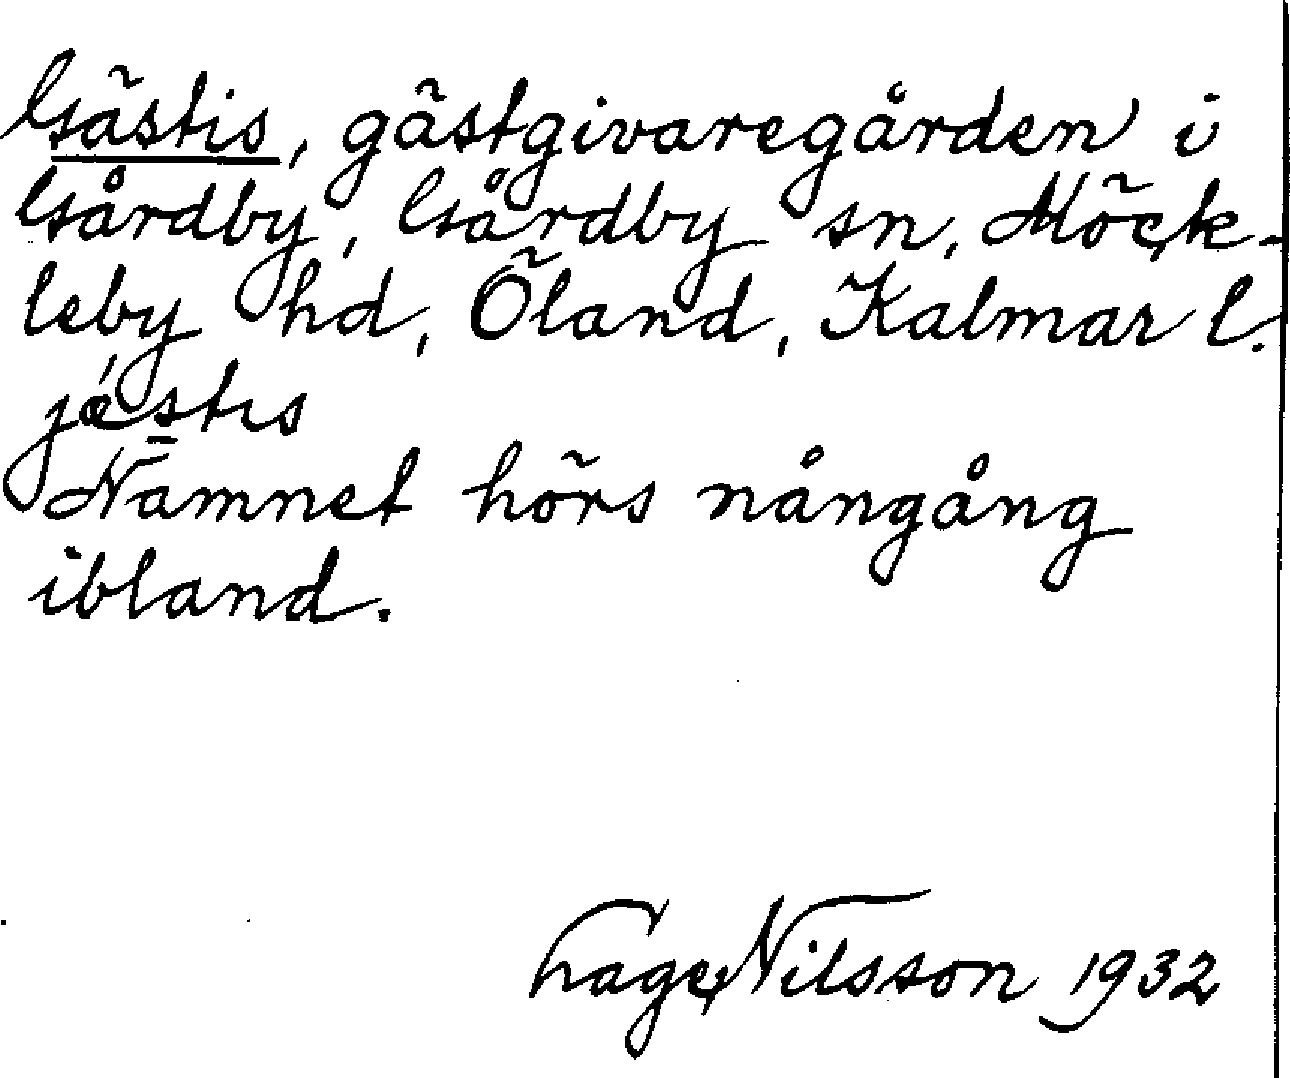 Gästis, gästgivaregården i
Gårdby, Gårdby sn, Möck-
leby hd, Öland, Kalmar l.
jǽstıs
Namnet hörs nångång
ibland.
Hage Nilsson 1932